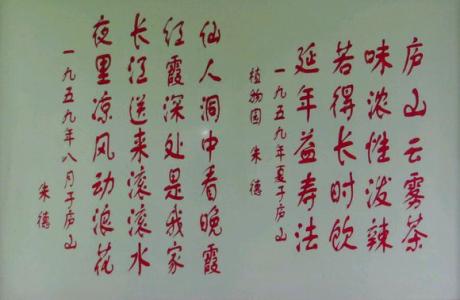 庐山云雾茶
味浓性泼辣
若得长时饮
延年益寿法
一九五九年夏于庐山
植物园 朱德
仙人洞中看晚霞
红霞深处是我家
长江送来滚滚水
夜里凉风动浪花
一九五九年八月于庐山
朱德